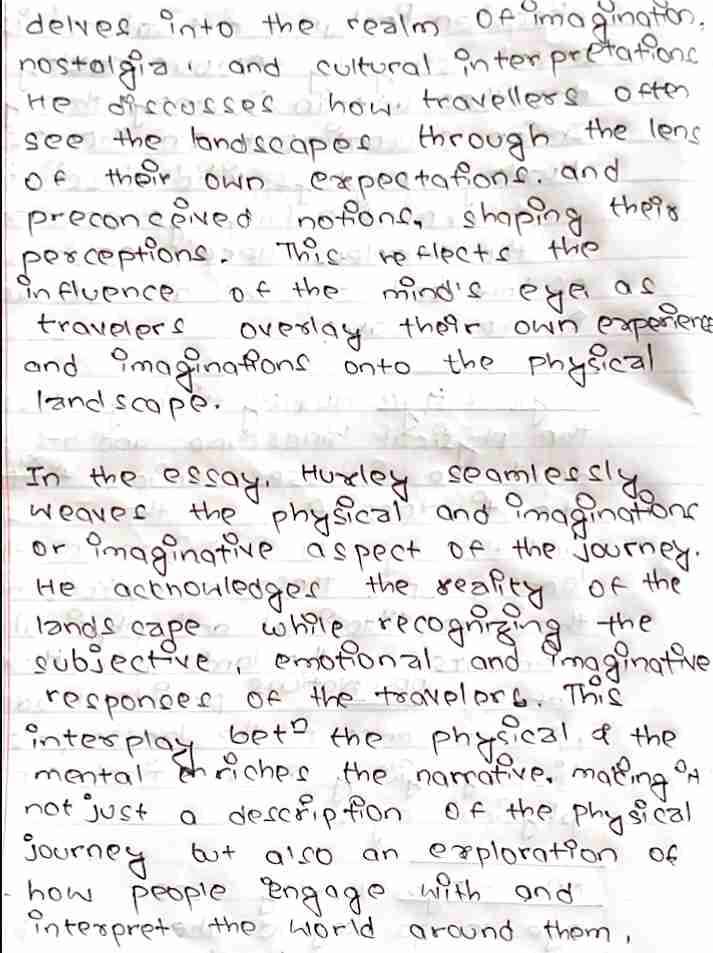 delves into the realm of imagination,
nostalgia, and cultural interpretations
He discusses how travellers often
see the landscapes through the lens
of their own expectations. and
preconceived notions, shaping their
perceptions. This reflects the
influence of the mind's eye, as
travelers overlay their own experience
and imaginations onto the physical
landscape.
In the essay, Huxley seamlessly
weaves the physical and imaginations
or imaginative aspect of the journey.
He acknowledges the reality of the
landscape while recognizing the
subjective, emotional and imaginative
responses of the travelers. This
interplay betn the physical & the
mental enriches the narrative, making it
not just a description of the physical
journey but also an exploration of
how people engage with and
interpret the world around them,